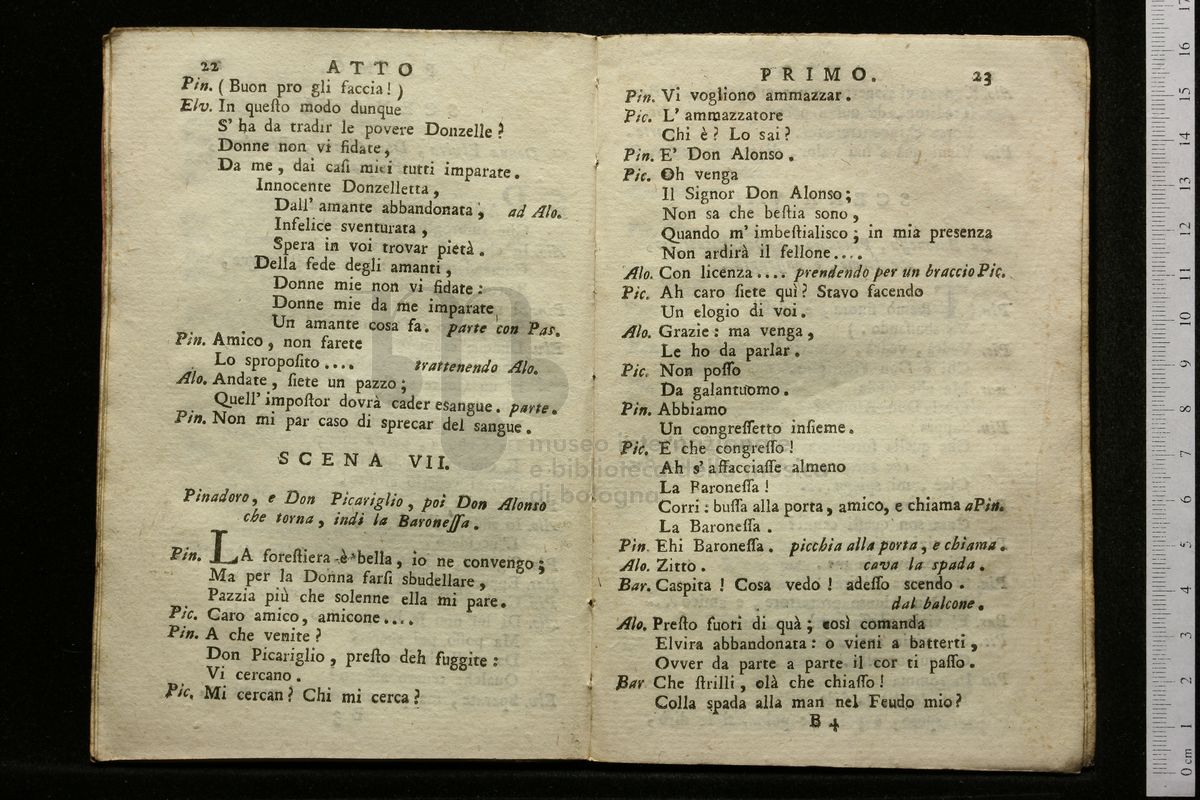 22 ATTO
Pin. ( Buon pro gli faccia! )
Elv. In queſto modo dunque
S' ha da tradir le povere Donzelle ?
Donne non vi fidate,
Da me, dai caſi miei tutti imparate.
Innocente Donzelletta,
Dall' amante abbandonata, ad Alo.
Infelice sventurata,
Spera in voi trovar pietà.
Della fede degli amanti,
Donne mie non vi fidate:
Donne mie da me imparate
Un amante cosa fa. parte con Pas.
Pin. Amico, non farete
Lo spropoſito .... trattenendo Alo.
Alo. Andate, ſiete un pazzo;
Quell' impoſtor dovrà cader esangue. parte.
Pin. Non mi par caso di sprecar del sangue.
SCENA VII.
Pinadoro, e Don Picariglio, poi Don Alonso
che torna, indi la Baroneſſa.
Pin. LA foreſtiera è bella, io ne convengo;
Ma per la Donna farſi sbudellare,
Pazzia più che solenne ella mi pare.
Pic. Caro amico, amicone ....
Pin. A che venite ?
Don Picariglio, preſto deh fuggite:
Vi cercano.
Pic. Mi cercan? Chi mi cerca?
PRIMO. 23
Pin. Vi vogliono ammazzar.
Pic. L' ammazzatore
Chi è? Lo sai?
Pin. E' Don Alonso.
Pic. Oh venga
Il Signor Don Alonso;
Non sa che beſtia sono,
Quando m' imbeſtialisco; in mia presenza
Non ardirà il fellone....
Alo. Con licenza .... prendendo per un braccio Pic.
Pic. Ah caro ſiete quì? Stavo facendo
Un elogio di voi.
Alo. Grazie: ma venga,
Le ho da parlar.
Pic. Non poſſo
Da galantuomo.
Pin. Abbiamo
Un congreſſetto inſieme.
Pic. E che congreſſo!
Ah s' affacciaſſe almeno
La Baroneſſa!
Corri: buſſa alla porta, amico, e chiama a Pin.
La Baroneſſa.
Pin. Ehi Baroneſſa. picchia alla porta, e chiama.
Alo. Zitto. cava la spada.
Bar. Caspita ! Cosa vedo ! adeſſo scendo.
dal balcone.
Alo. Preſto fuori di quà; così comanda
Elvira abbandonata: o vieni a batterti,
Ovver da parte a parte il cor ti paſſo.
Bar. Che ſtrilli, olà che chiaſſo!
Colla spada alla man nel Feudo mio?
B 4
museo internazionale
e biblioteca della musica
di bologna
0 cm 1 2 3 4 5 6 7 8 9 10 11 12 13 14 15 16 17